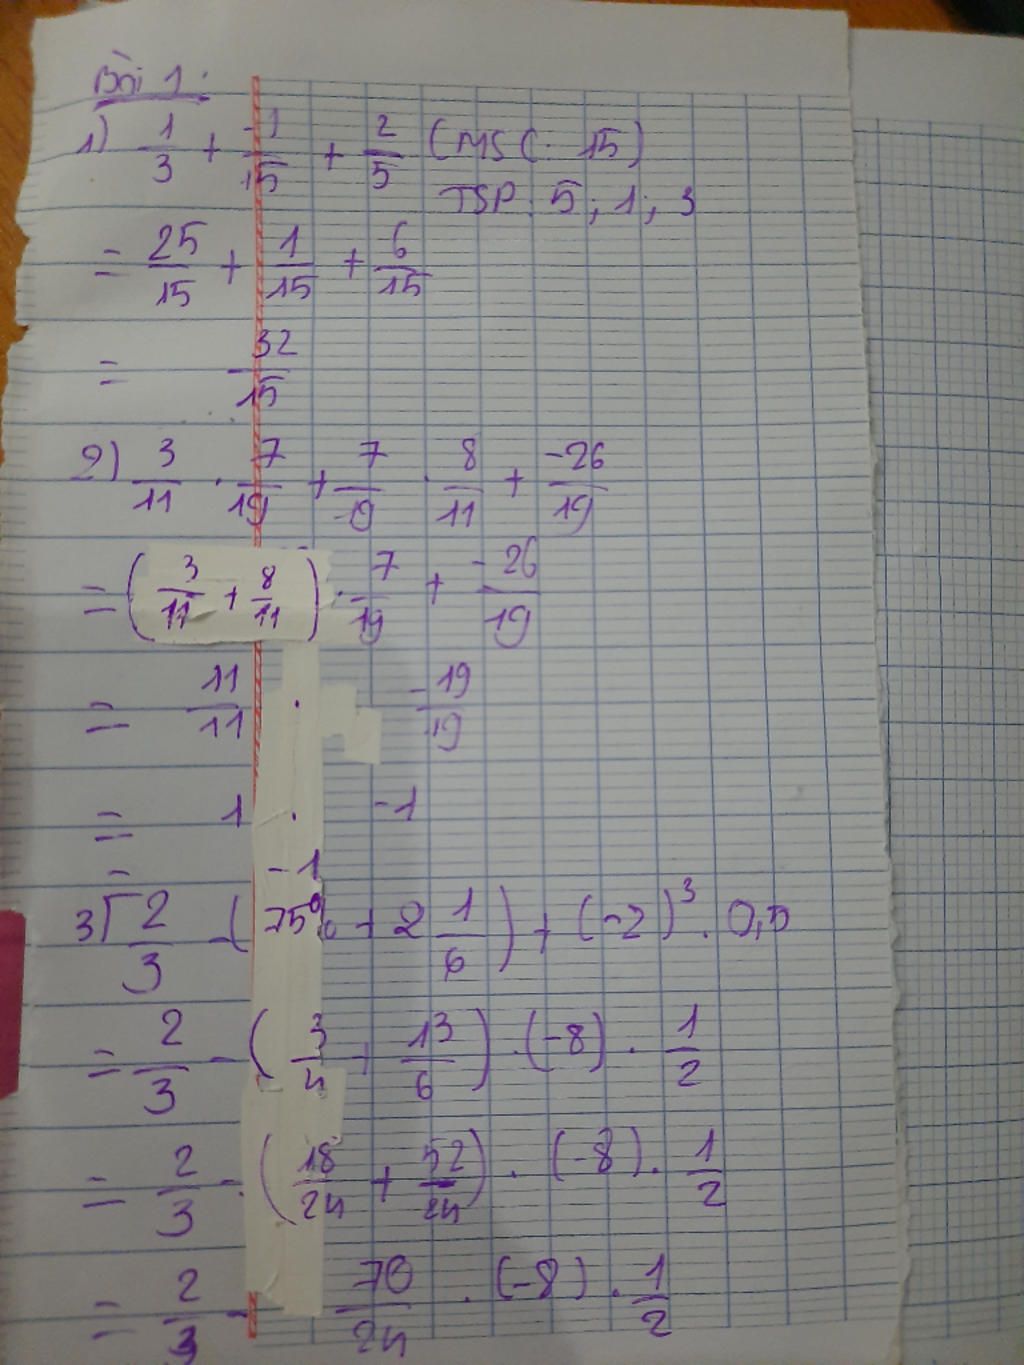 Bài 1:
1) 1/3 + -1/15 + 2/5 (MSC: 15)
TSP: 5; 1; 3
= 25/15 + 1/15 + 6/15
= 32/15
2) 3/11 . 7/19 + 7/19 . 8/11 + -26/19
= (3/11 + 8/11) . 7/19 + -26/19
= 11/11 . -19/19
= 1 . -1
= -1
3) 2/3 - (75% + 2 1/6) + (-2)³ . 0,5
= 2/3 - (3/4 + 13/6) . (-8) . 1/2
= 2/3 - (18/24 + 52/24) . (-8) . 1/2
= 2/3 - 70/24 . (-8) . 1/2